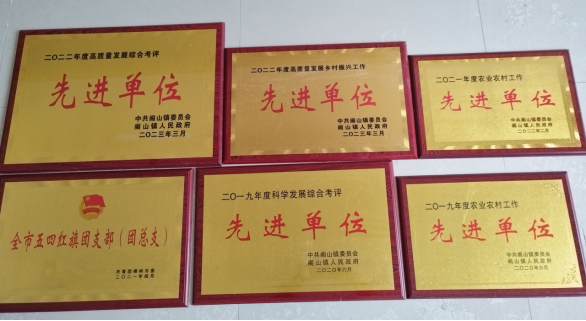 二〇二二年度高质量发展综合考评
先进单位
中共阁山镇委员会
阁山镇人民政府
二〇二三年三月
二〇二二年度高质量发展乡村振兴工作
先进单位
中共阁山镇委员会
阁山镇人民政府
二〇二三年三月
二〇二一年度农业农村工作
先进单位
中共阁山镇委员会
阁山镇人民政府
二〇二二年二月
全市五四红旗团支部（团总支）
共青团樟树市委
二〇二一年四月
二〇一九年度科学发展综合考评
先进单位
中共阁山镇委员会
阁山镇人民政府
二〇二〇年六月
二〇一九年度农业农村工作
先进单位
中共阁山镇委员会
阁山镇人民政府
二〇二〇年六月